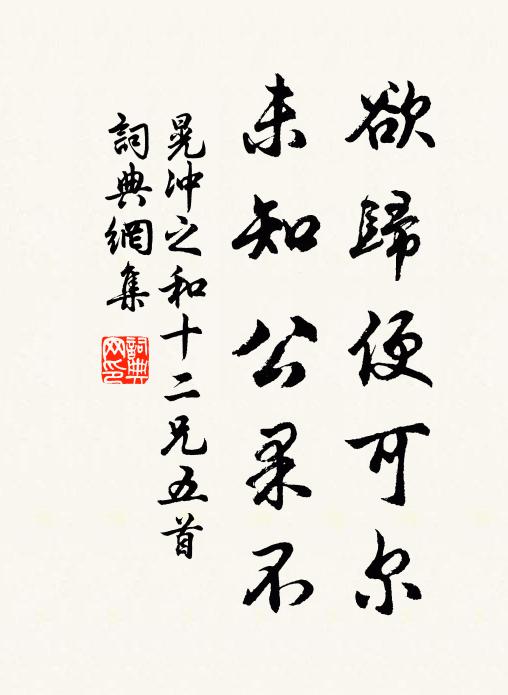 欲歸便可尔
未知公果不
晁冲之和十二兄五首
詞典網集
詞典网印